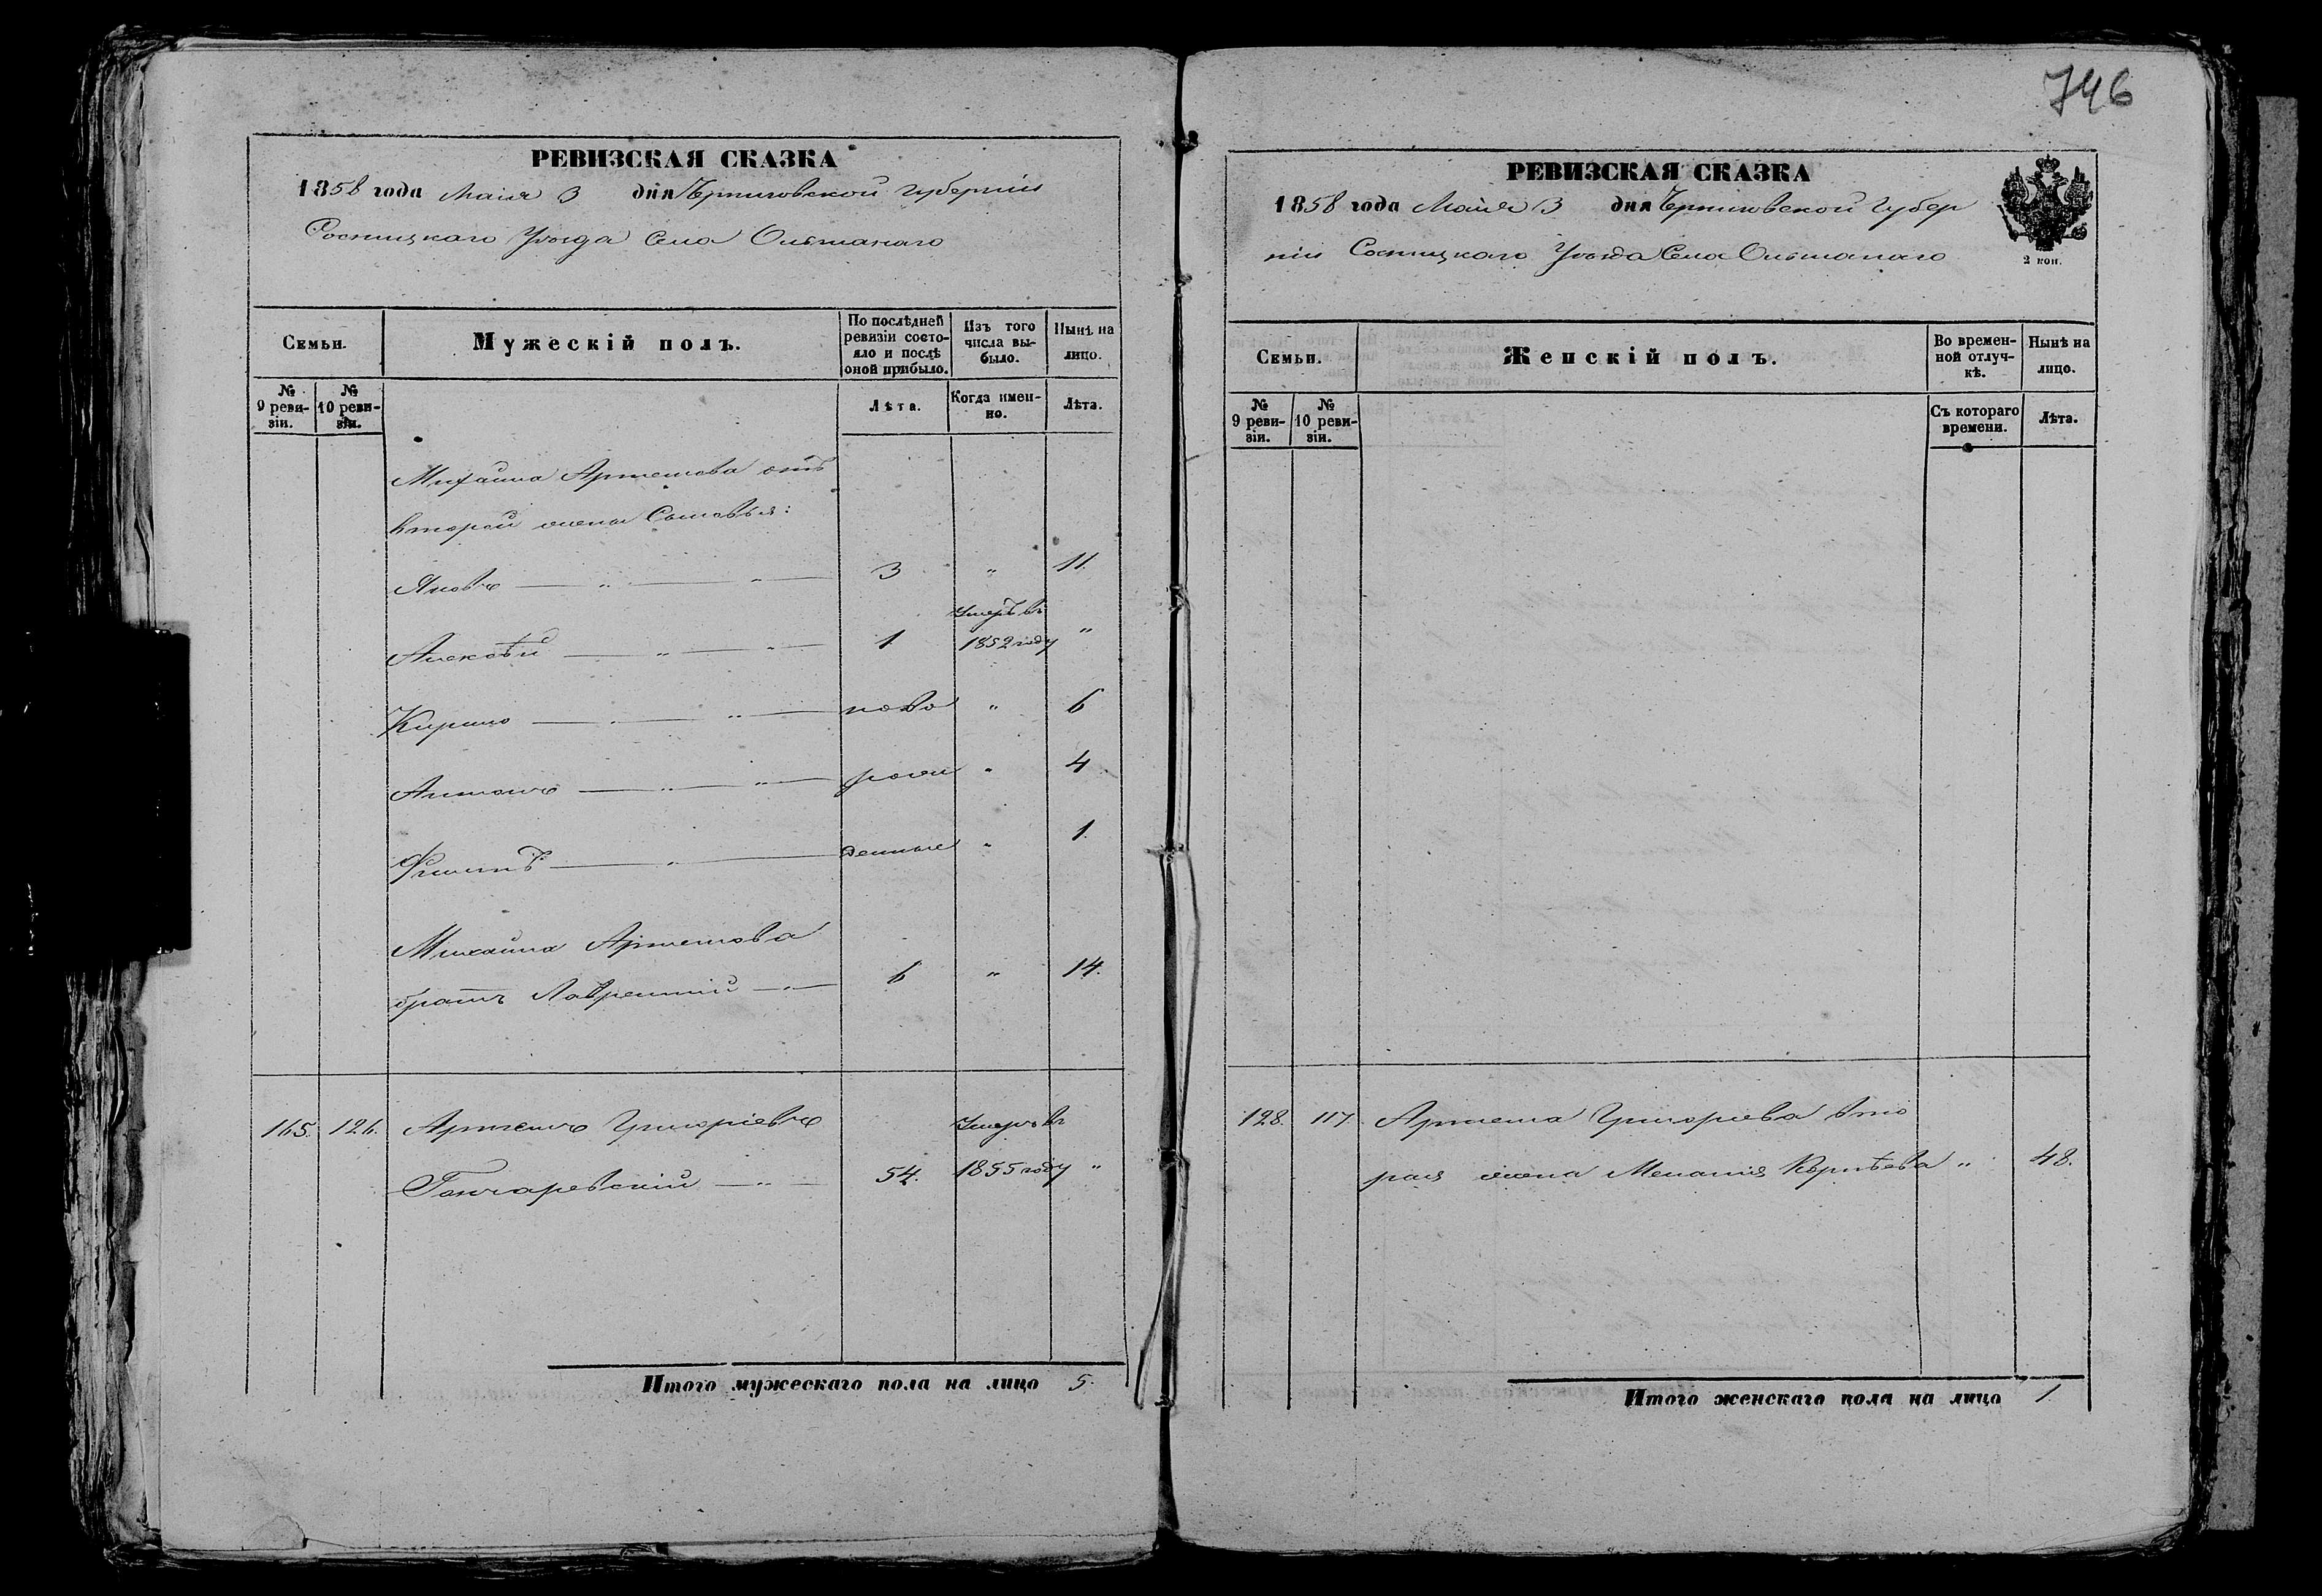 746
РЕВИЗСКАЯ СКАЗКА
1858 года Маія 3 дня Черниговской губерніи
Сосницкаго Уѣзда Села Ольшанаго
Семьи.
Мужескій полъ.
По послѣдней ревизіи состояло и послѣ оной прибыло.
Изъ того числа выбыло.
Нынѣ на лицо.
№ 9 ревизіи.
№ 10 ревизіи.
Лѣта.
Когда именно.
Лѣта.
Михайла Артемова отъ
второй жены Сыновья:
Яковъ 3 " 11.
Умеръ въ
Алексѣй 1 1852 году "
Кирило ново " 6
Антонъ рож " 4
Филипъ денные " 1.
Михайла Артемова
братъ Лаврентій 6 " 14.
165. 126. Артемъ Григоріевъ Умеръ въ
Гончаревскій 54. 1855 году "
Итого мужескаго пола на лицо 5.
РЕВИЗСКАЯ СКАЗКА
1858 года Маія 3 дня Черниговской Губер
ніи Сосницкаго Уѣзда Села Ольшанаго
2 коп.
Семьи.
Женскій полъ.
Во временной отлучкѣ.
Нынѣ на лицо.
№ 9 ревизіи.
№ 10 ревизіи.
Съ котораго времени.
Лѣта.
128. 117. Артема Григорьева вто
рая жена Меланія " 48.
Итого женскаго пола на лицо 1.